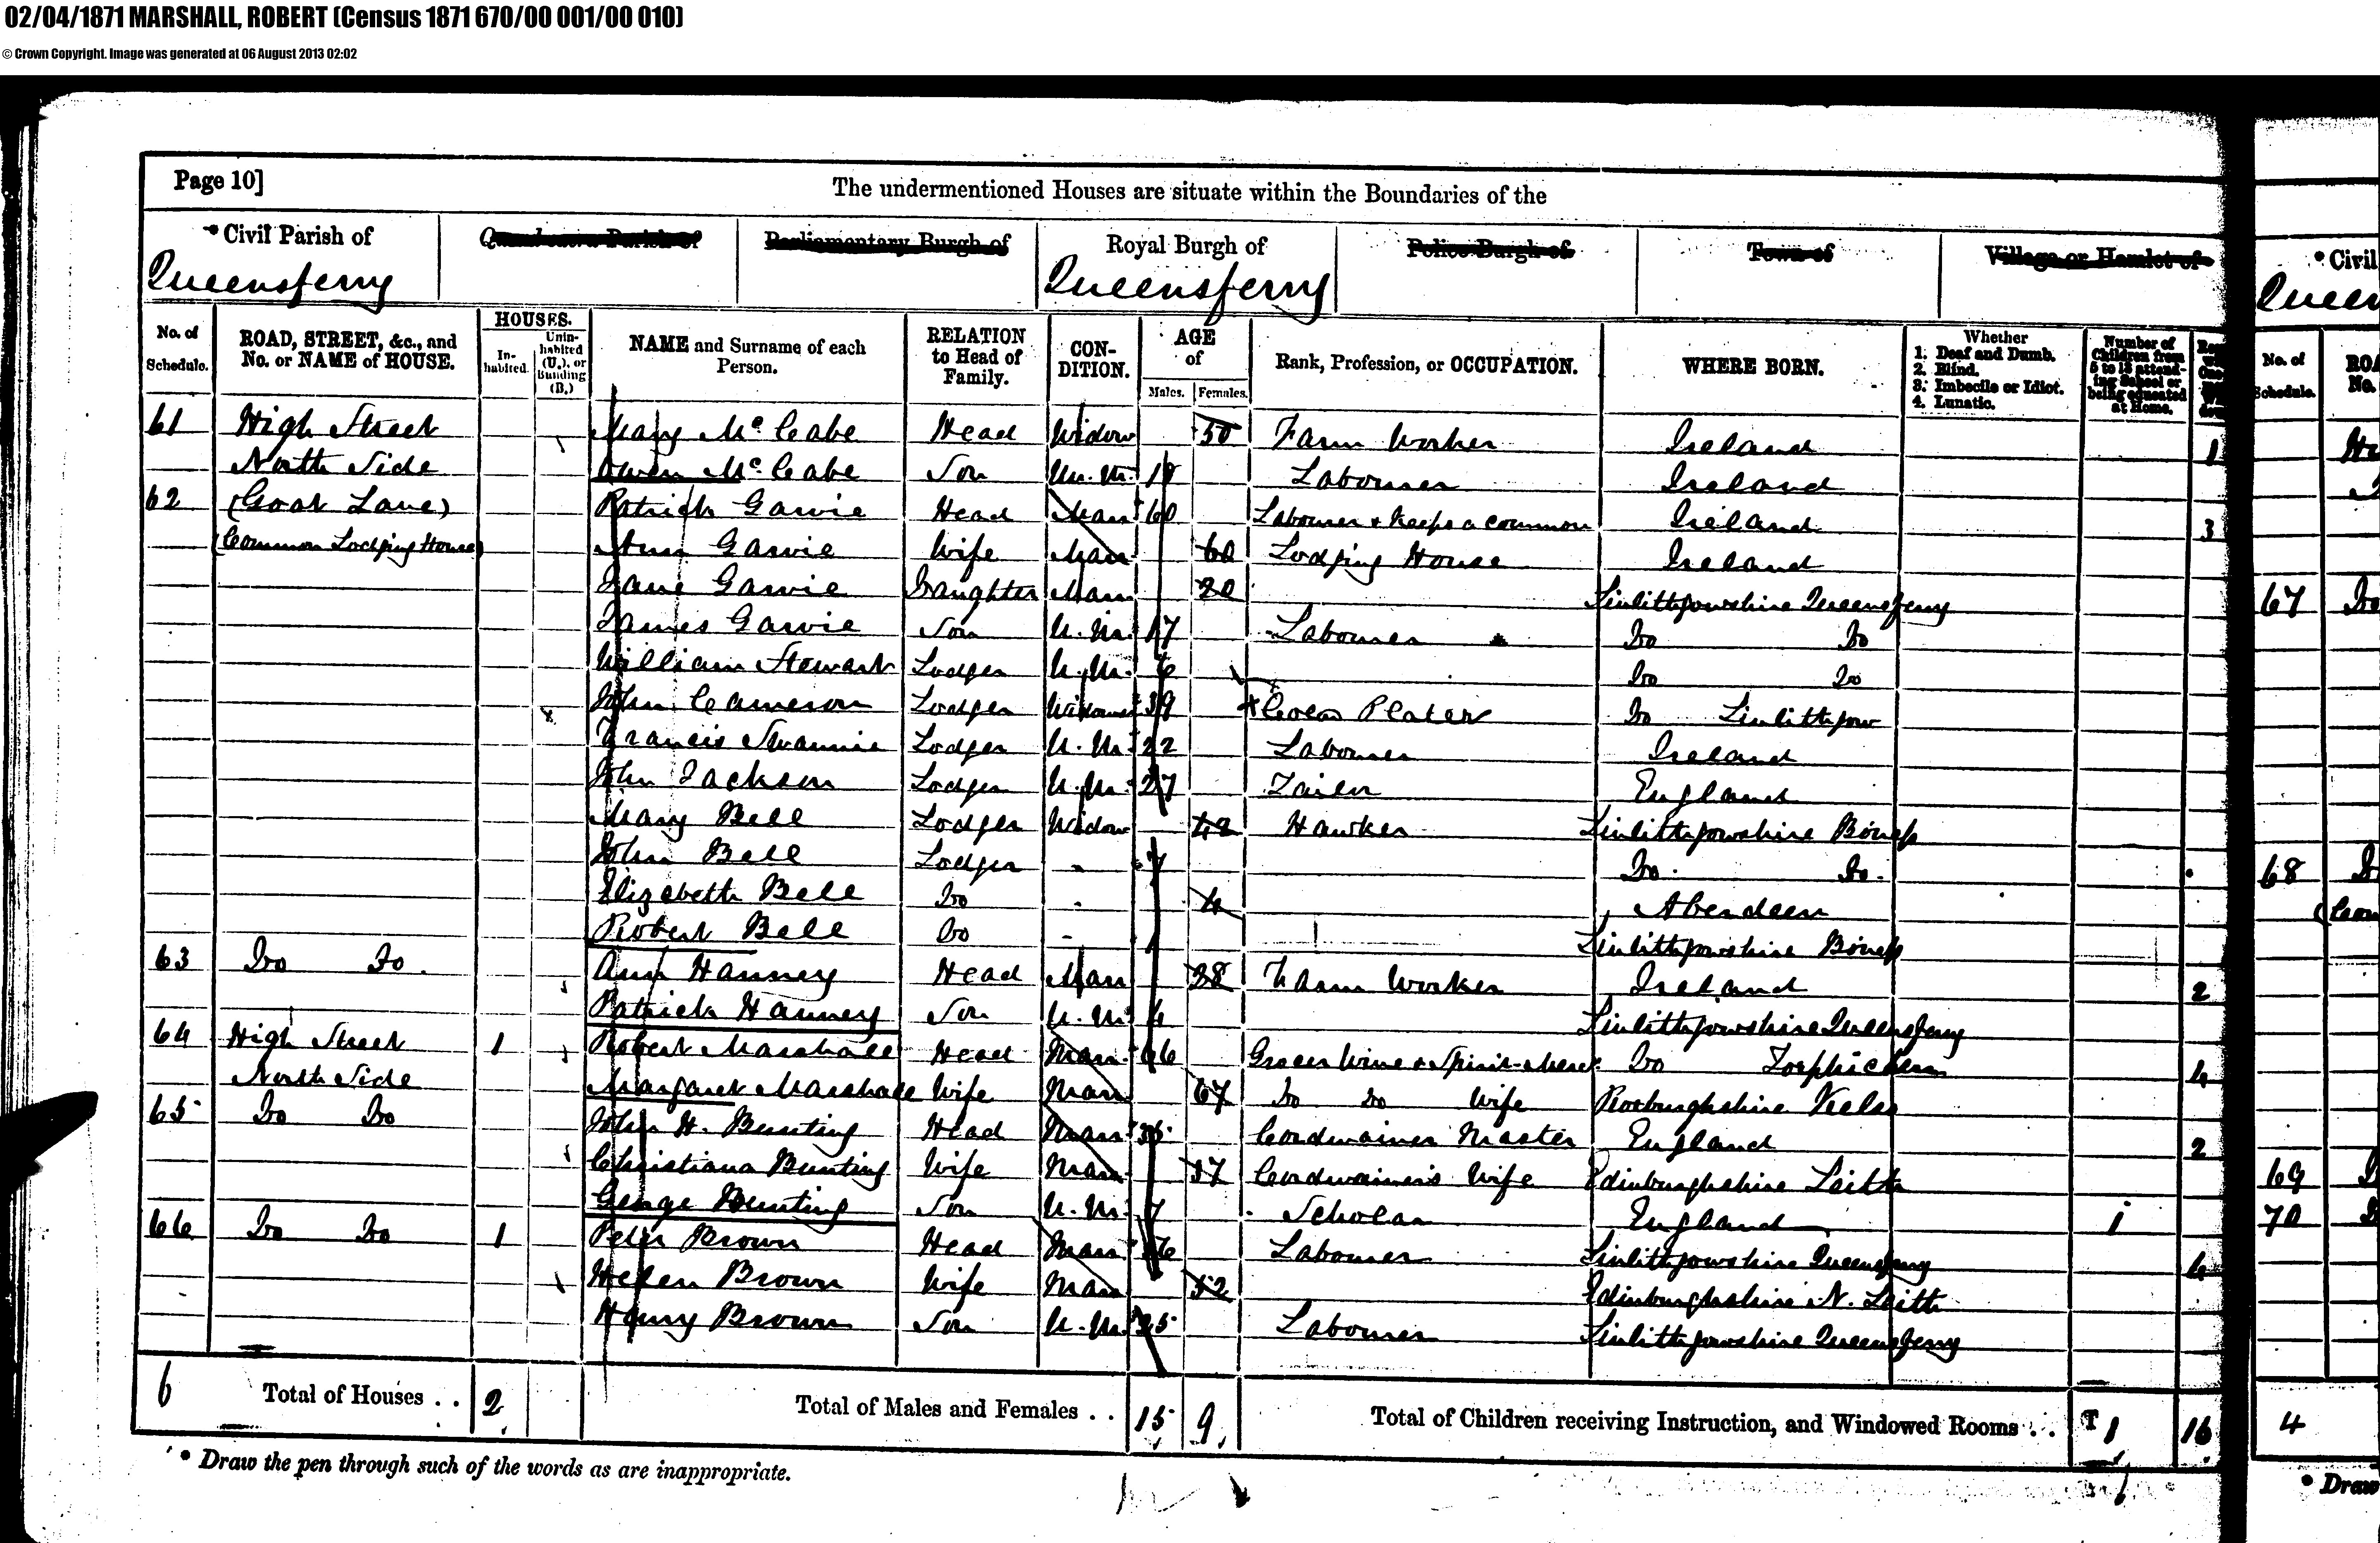 02/04/1871 MARSHALL, ROBERT (Census 1871 670/00 001/00 010)
© Crown Copyright. Image was generated at 06 August 2013 02:02
Page 10]
The undermentioned Houses are situate within the Boundaries of the
• Civil Parish of Quoad sacra Parish of Parliamentary Burgh of Royal Burgh of Police Burgh of Town of Village or Hamlet of • Civil
Queensferry Queensferry
No. of Schedule. ROAD, STREET, &c., and No. or NAME of HOUSE. HOUSES. Inhabited. Uninhabited (U.), or Building (B.) NAME and Surname of each Person. RELATION to Head of Family. CONDITION. AGE of Males. Females. Rank, Profession, or OCCUPATION. WHERE BORN. Whether 1. Deaf and Dumb. 2. Blind. 3. Imbecile or Idiot. 4. Lunatic. Number of Children from 5 to 13 attending School or being educated at Home. No. of Schedule.
61 High Street Mary McCabe Head Widow 50 Farm Worker Ireland 1
North Side Owen McCabe Son Un. M. Labourer Ireland
62 (Goat Lane) Patrick Garvie Head Mar 60 Labourer & Keeps a common Ireland 3
(Common Lodging House) Ann Garvie Wife Mar 60 Lodging House Ireland
Jane Garvie Daughter Mar 20 Linlithgowshire Queensferry 67
James Garvie Son U. M. 17 Labourer Do Do
William Stewart Lodger U. M. 6 Do Do
John Cameron Lodger Widower 39 Plater Do Linlithgow
Francis Lodger U. M. 22 Labourer Ireland
John Jackson Lodger U. M. 27 Tailor England
Mary Bell Lodger Widow 42 Hawker Linlithgowshire Boness
John Bell Lodger - 7 Do. Do. 68
Elizabeth Bell Do - 4 Aberdeen
Robert Bell Do - 1 Linlithgowshire Boness
63 Do Do. Ann Hanney Head Mar 28 Farm Worker Ireland 2
Patrick Hanney Son U. M. 4 Linlithgowshire Queensferry
64 High Street 1 Robert Marshall Head Mar. 66 Grocer Wine & Spirit-Merct. Do Torphichen 4
North Side Margaret Marshall Wife Mar 67 Do Do Wife Roxburghshire Kelso
65 Do Do John H. Bunting Head Mar 35 Cordwainer Master England 2
Christiana Bunting Wife Mar 37 Cordwainer's Wife Edinburghshire Leith 69
George Bunting Son U. M. 7 Scholar England 1 70
66 Do Do 1 Peter Brown Head Mar 56 Labourer Linlithgowshire Queensferry 4
Helen Brown Wife Mar 52 Edinburghshire N. Leith
Henry Brown Son U. M. 25 Labourer Linlithgowshire Queensferry
6 Total of Houses . . 2 Total of Males and Females . . 15 9 Total of Children receiving Instruction, and Windowed Rooms . . T 1 16 4
• Draw the pen through such of the words as are inappropriate. • Draw